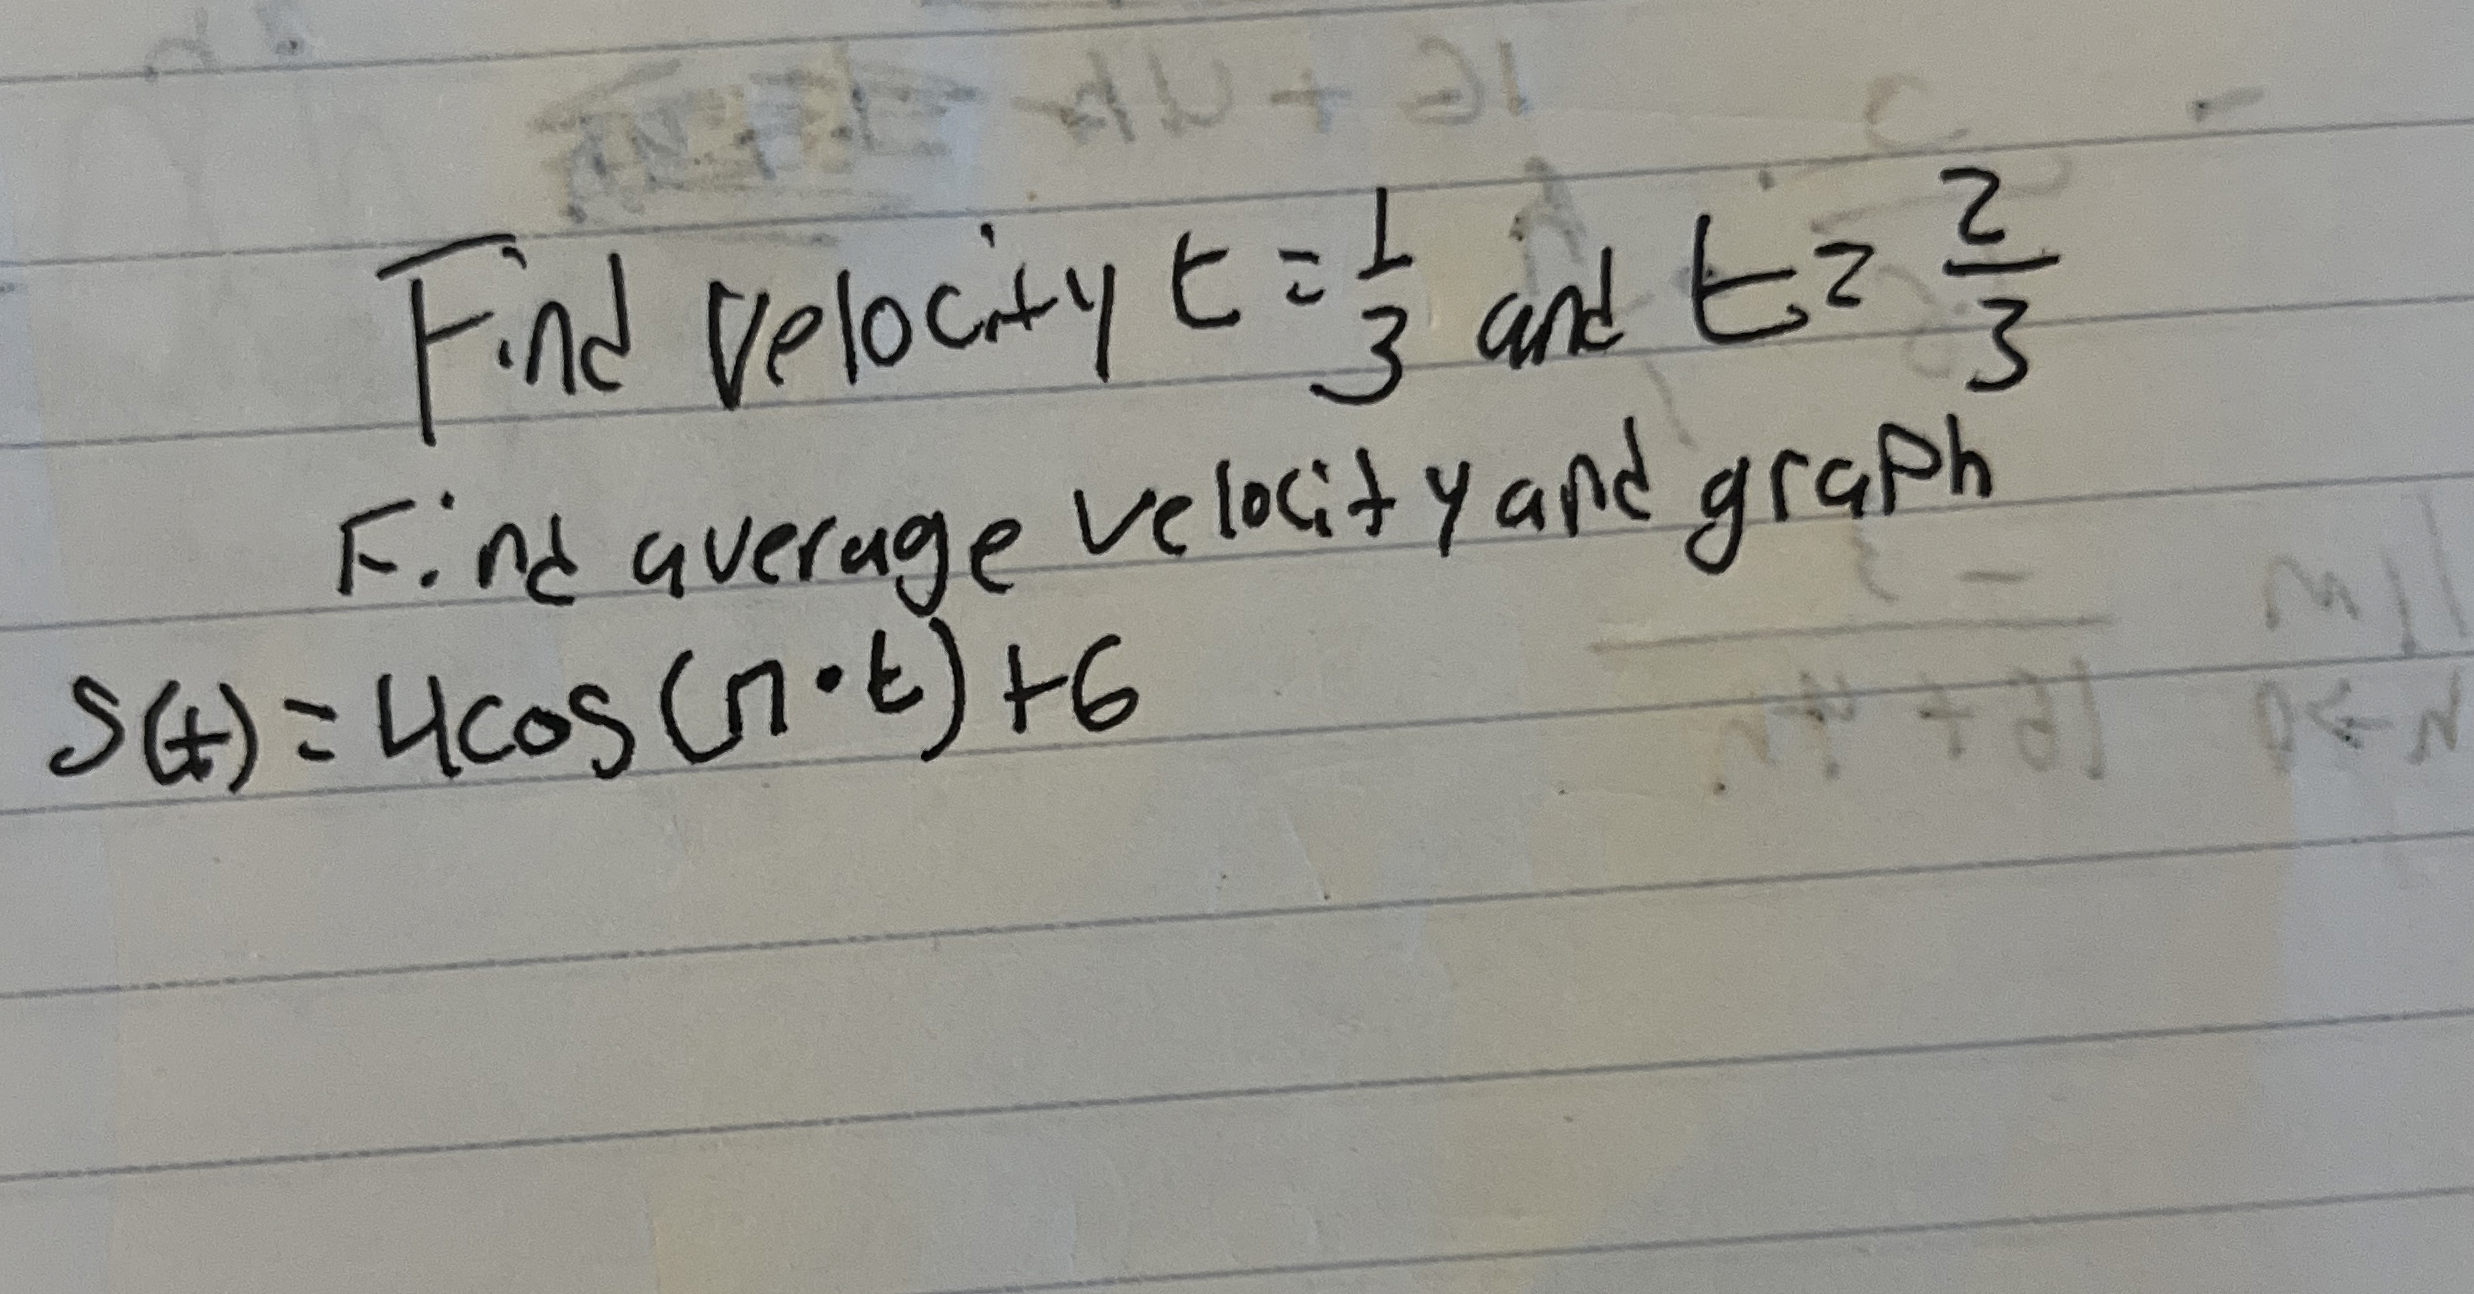 Find velocity t = 1/3 and t = 2/3
Find average velocity and graph
S(t) = 4cos(π·t)+6